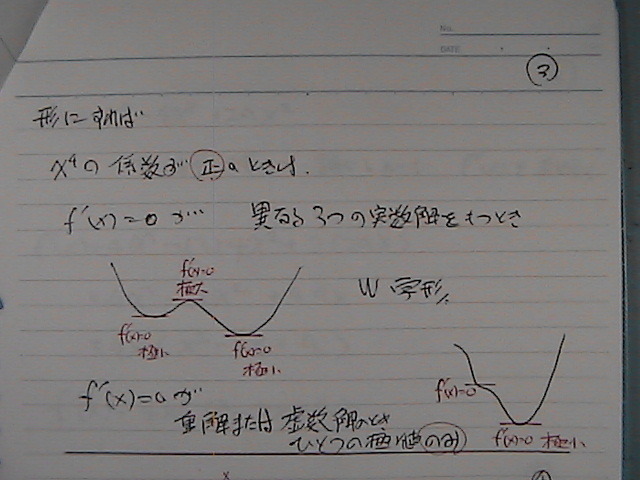 No.
DATE
③
形にすれば
x⁴の 係数が 正のときは.
f'(x)=0が 異なる3つの実数解をもつとき
f'(x)=0
極大
W字形、
f'(x)=0
極小
f'(x)=0
極小
f'(x)=0
f'(x)=0 極小
f'(x)=0が
重解または虚数解のとき
ひとつの極値のみ
x